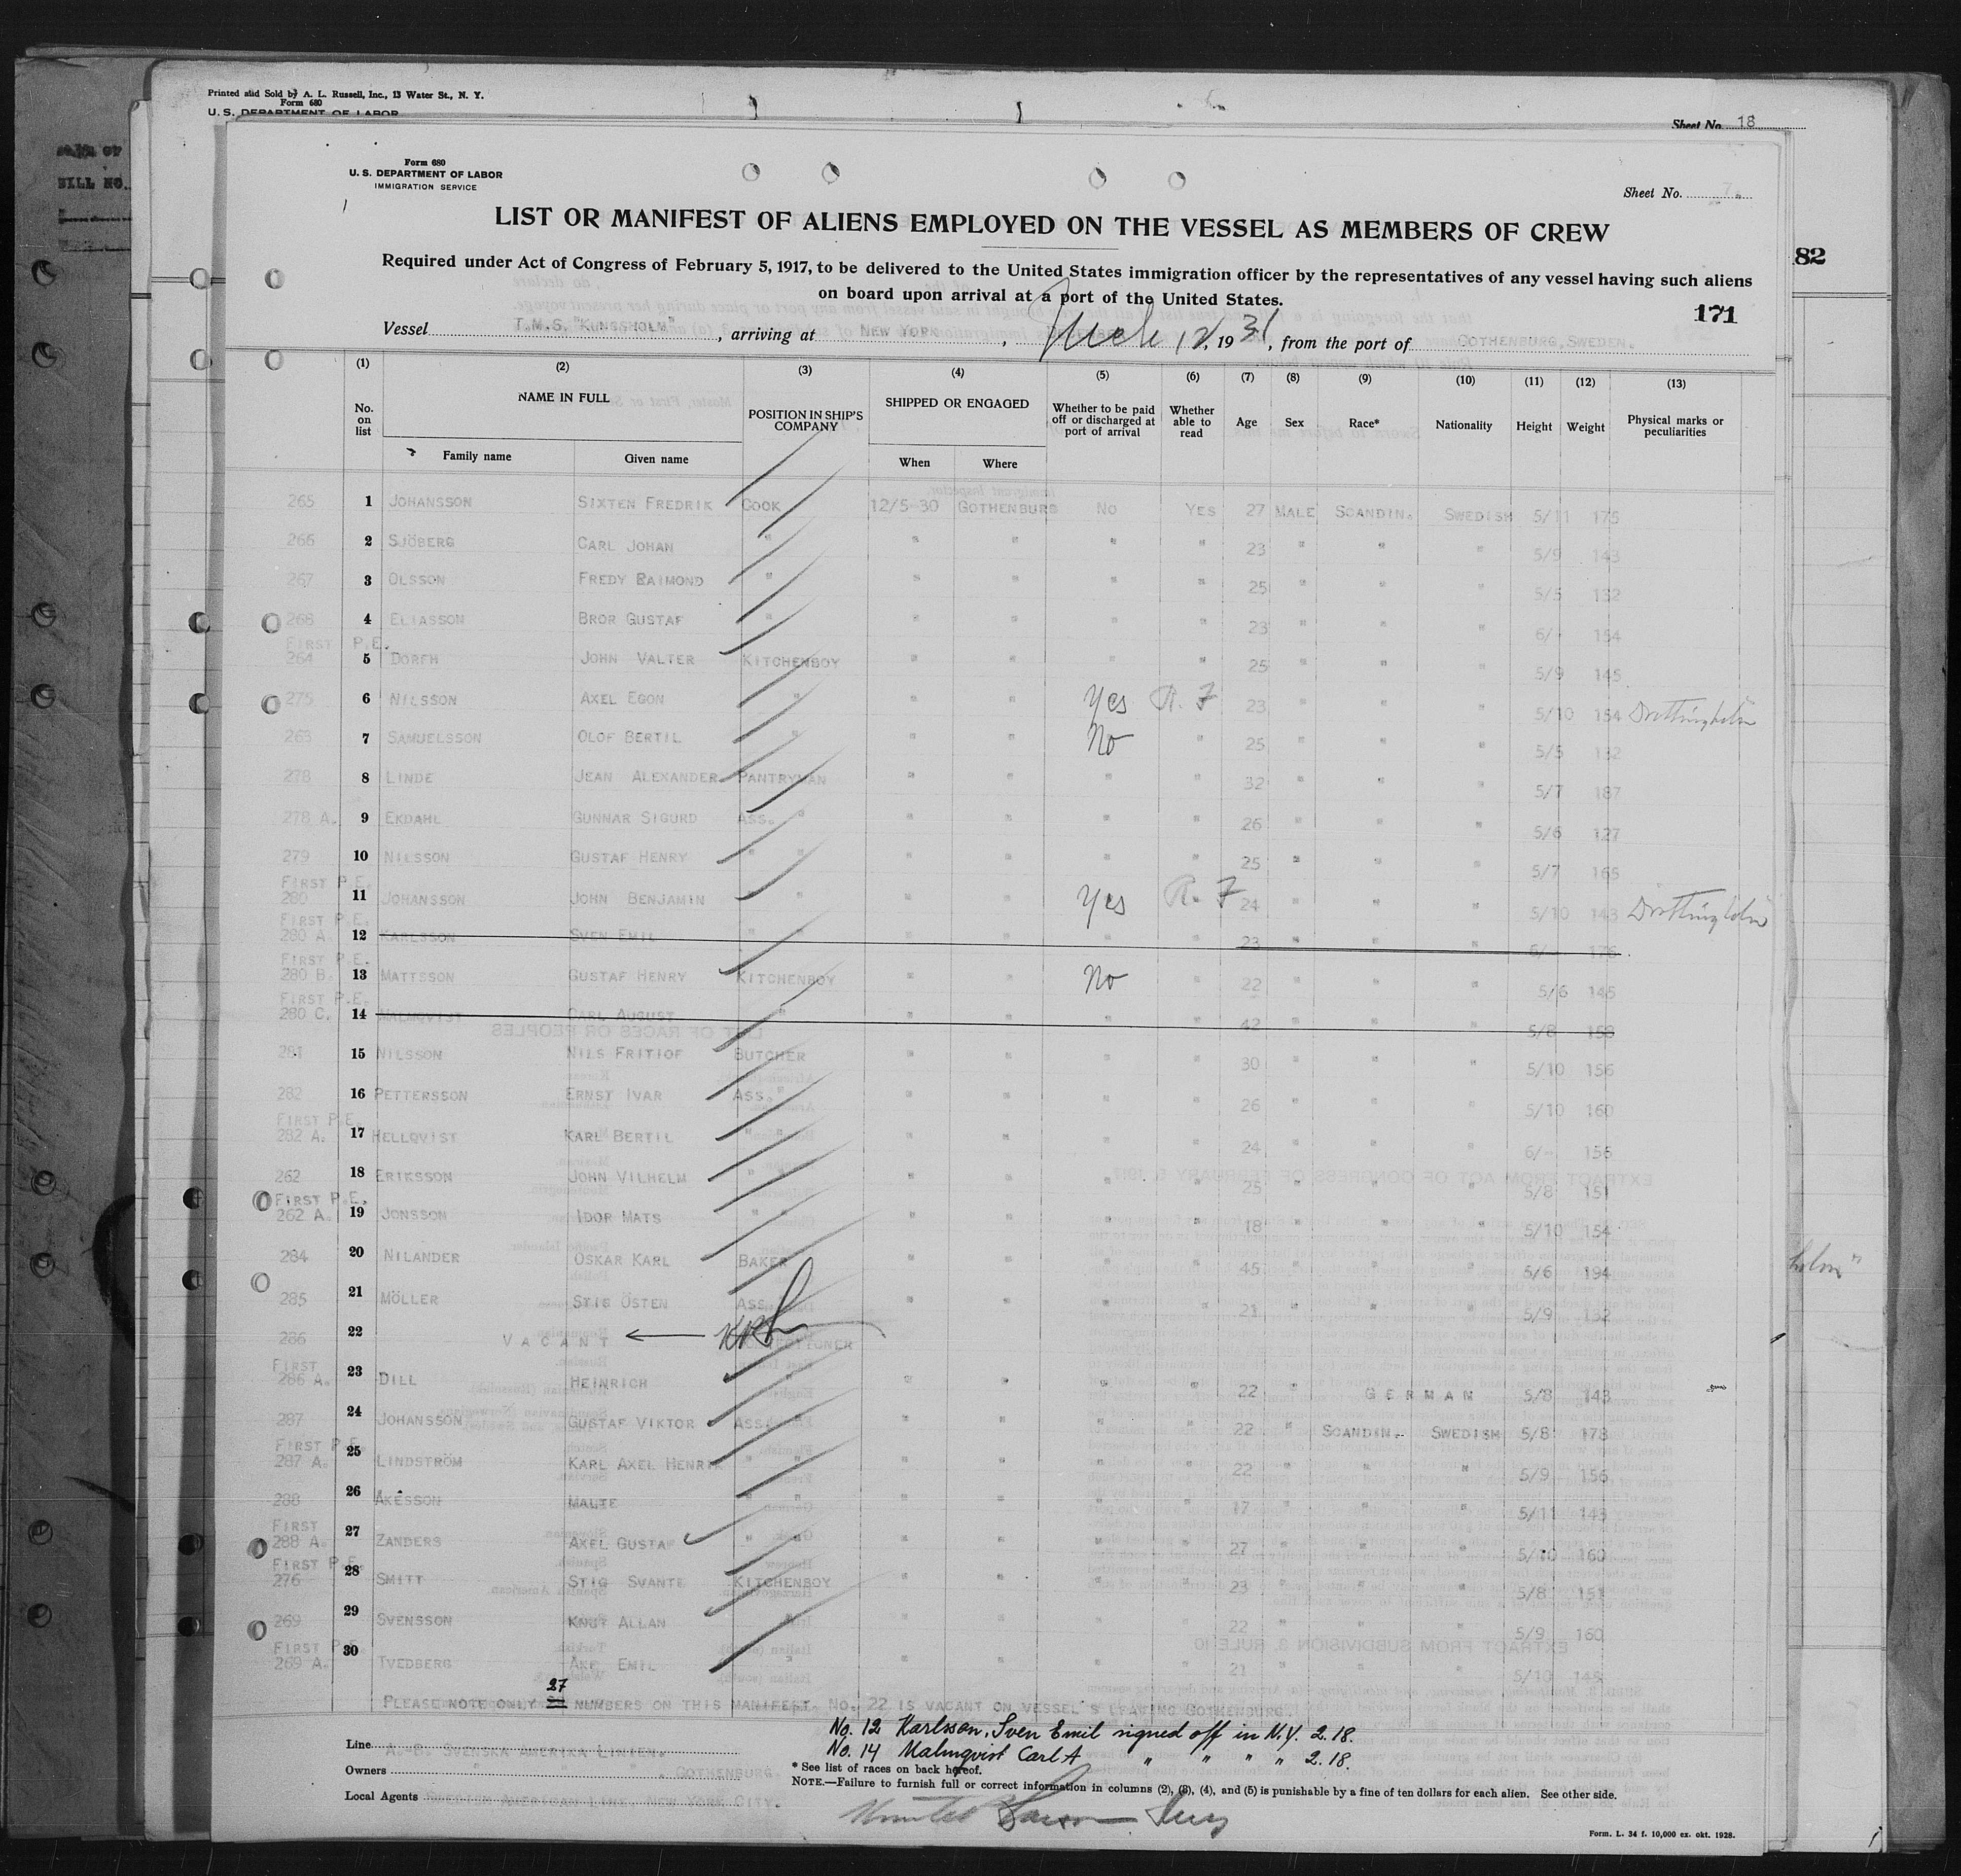 Printed and Sold by A. L. Russell, Inc., 13 Water St., N. Y.
Form 680
U. S. DEPARTMENT OF LABOR
Sheet No. 18
82
Form 680
U. S. DEPARTMENT OF LABOR
IMMIGRATION SERVICE
Sheet No. 7.
LIST OR MANIFEST OF ALIENS EMPLOYED ON THE VESSEL AS MEMBERS OF CREW
Required under Act of Congress of February 5, 1917, to be delivered to the United States immigration officer by the representatives of any vessel having such aliens
on board upon arrival at a port of the United States.
171
Vessel T.M.S. "KUNGSHOLM", arriving at NEW YORK, Mch 12, 1931, from the port of GOTHENBURG, SWEDEN.
(1) (2) (3) (4) (5) (6) (7) (8) (9) (10) (11) (12) (13)
No. on list NAME IN FULL POSITION IN SHIP'S COMPANY SHIPPED OR ENGAGED Whether to be paid off or discharged at port of arrival Whether able to read Age Sex Race* Nationality Height Weight Physical marks or peculiarities
Family name Given name When Where
265 1 JOHANSSON SIXTEN FREDRIK COOK 12/5-30 GOTHENBURG NO YES 27 MALE SCANDIN. SWEDISH 5/11 175
266 2 SJÖBERG CARL JOHAN " " " " " 23 " " " 5/9 143
267 3 OLSSON FREDY RAIMOND " " " " " 25 " " " 5/5 132
268 4 ELIASSON BROR GUSTAF " " " " " 23 " " " 6/- 154
FIRST P.E.
264 5 DORFH JOHN VALTER KITCHENBOY " " " " 25 " " " 5/9 145
275 6 NILSSON AXEL EGON " " " Yes R. F 23 " " " 5/10 154 Drottningholm
263 7 SAMUELSSON OLOF BERTIL " " " No " 25 " " " 5/5 132
278 8 LINDE JEAN ALEXANDER PANTRYMAN " " " " 32 " " " 5/7 187
278 A. 9 EKDAHL GUNNAR SIGURD ASS. " " " " " 26 " " " 5/6 127
279 10 NILSSON GUSTAF HENRY " " " " " " 25 " " " 5/7 165
FIRST P.E.
280 11 JOHANSSON JOHN BENJAMIN " " " Yes R. F 24 " " " 5/10 143 Drottningholm
FIRST P.E.
280 A. 12 KARLSSON SVEN EMIL " " " " " " 23 " " " 6/- 176
FIRST P.E.
280 B. 13 MATTSSON GUSTAF HENRY KITCHENBOY " " No " 22 " " " 5/6 145
FIRST P.E.
280 C. 14 MALMQVIST CARL AUGUST " " " " " 42 " " " 5/8 158
281 15 NILSSON NILS FRITIOF BUTCHER " " " " 30 " " " 5/10 156
282 16 PETTERSSON ERNST IVAR ASS. " " " " " 26 " " " 5/10 160
FIRST P.E.
282 A. 17 HELLQVIST KARL BERTIL " " " " " " 24 " " " 6/- 156
262 18 ERIKSSON JOHN VILHELM " " " " " " 25 " " " 5/8 151
FIRST P.E.
262 A. 19 JONSSON IDOR MATS " " " " " " 18 " " " 5/10 154
284 20 NILANDER OSKAR KARL BAKER " " " " 45 " " " 5/6 194
285 21 MÖLLER STIG ÖSTEN ASS. " " " " " 21 " " " 5/9 132
286 22 VACANT
FIRST
286 A. 23 DILL HEINRICH " " " " " 22 " GERMAN 5/8 143
287 24 JOHANSSON GUSTAF VIKTOR ASS. " " " " " 22 " SCANDIN. SWEDISH 5/8 178
FIRST P.E.
287 A. 25 LINDSTRÖM KARL AXEL HENRIK " " " " " " 22 " " " 5/9 156
288 26 ÅKESSON MALTE " " " " " " 17 " " " 5/11 143
FIRST
288 A. 27 ZANDERS AXEL GUSTAF " " " " " " 27 " " " 5/10 160
FIRST P.E.
276 28 SMITT STIG SVANTE KITCHENBOY " " " " 23 " " " 5/8 151
269 29 SVENSSON KNUT ALLAN " " " " " 22 " " " 5/9 160
FIRST P.E.
269 A. 30 TVEDBERG ÅKE EMIL " " " " " 21 " " " 5/10 148
27
PLEASE NOTE ONLY NUMBERS ON THIS MANIFEST. NO. 22 IS VACANT ON VESSEL'S LEAVING GOTHENBURG.
No. 12 Karlsson, Sven Emil signed off in N.Y. 2.18.
No. 14 Malmqvist Carl A " " " " 2.18.
Line A.-B. SVENSKA AMERIKA LINIEN.
Owners " " " , GOTHENBURG.
Local Agents SWEDISH AMERICAN LINE, NEW YORK CITY.
* See list of races on back hereof.
NOTE.—Failure to furnish full or correct information in columns (2), (3), (4), and (5) is punishable by a fine of ten dollars for each alien. See other side.
Form. L. 34 f. 10,000 ex. okt. 1928.